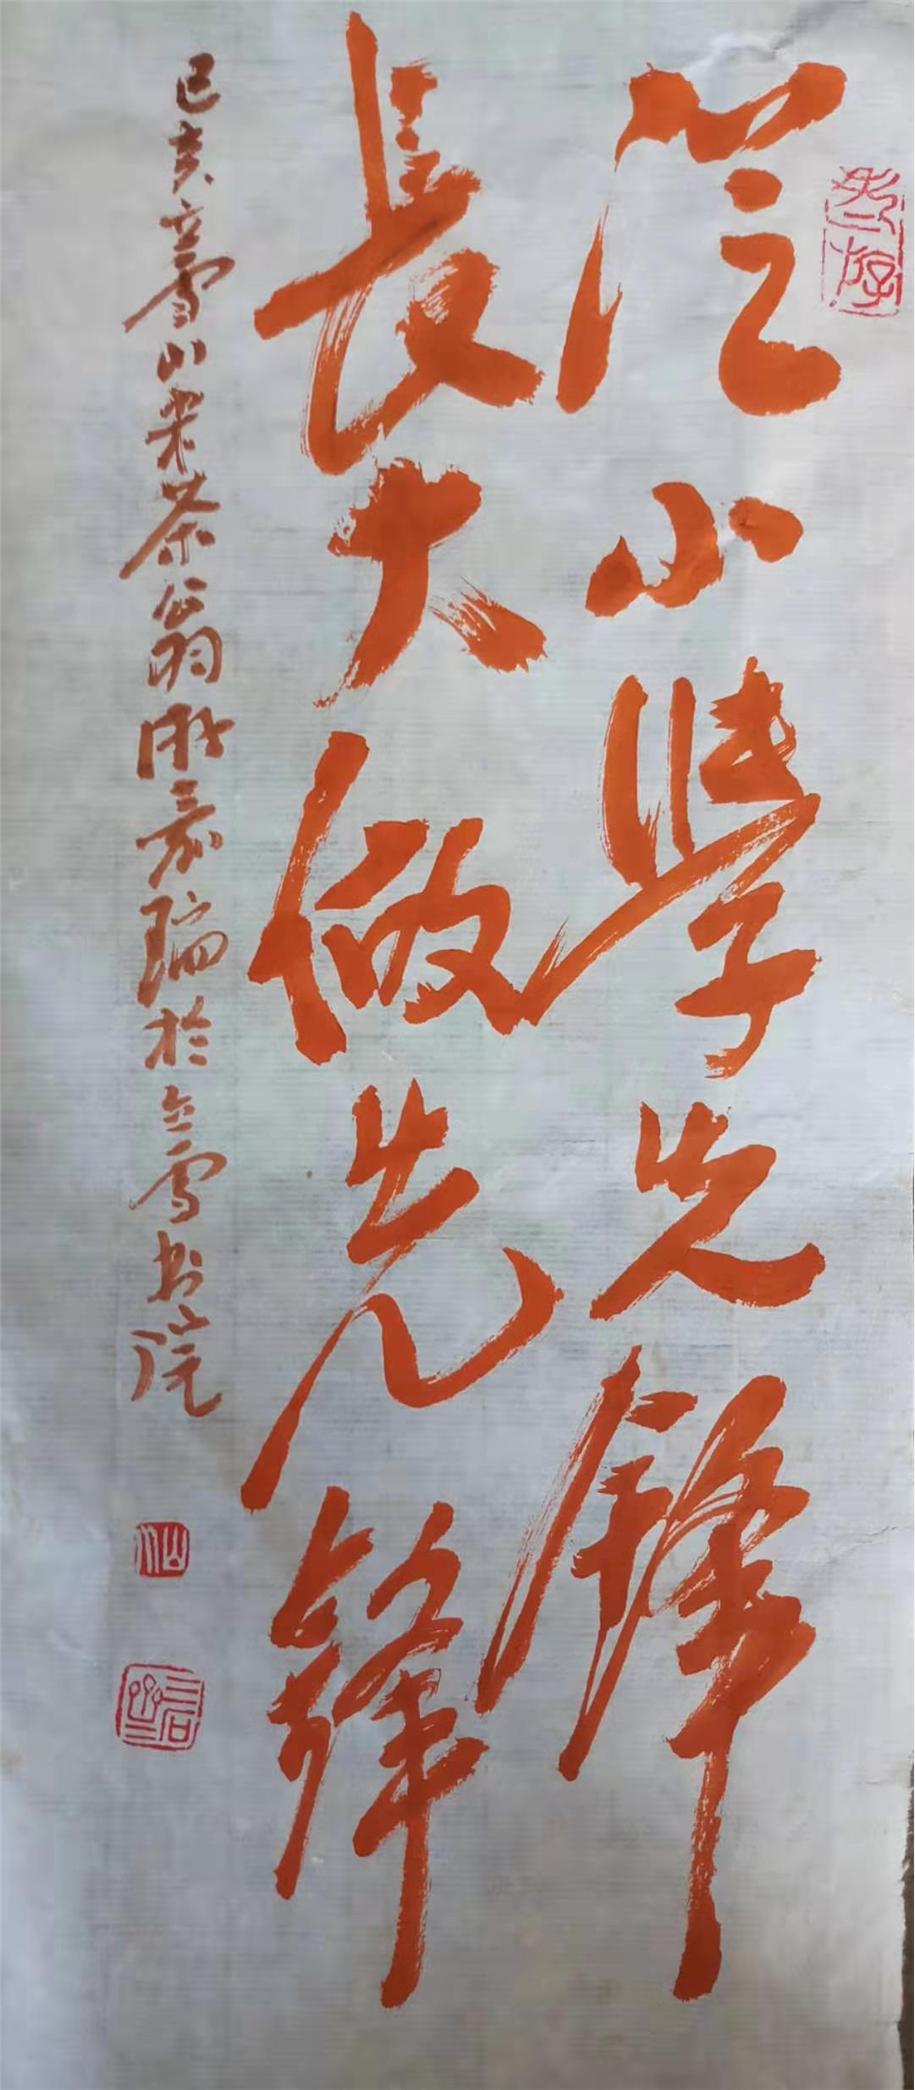 從小學先鋒
長大做先鋒
己亥立雪山米茶翁嘉瑞於立雪書院